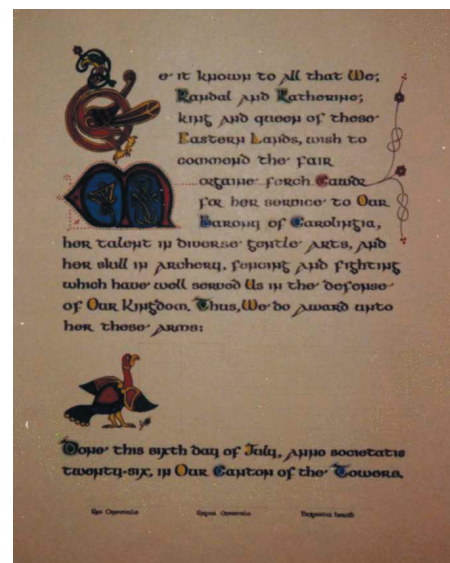 Be it known to all that We,
Randal and Katherine,
king and queen of these
Eastern Lands, wish to
commend the fair
Morgaine ferch Cawdr
for her service to Our
Barony of Carolingia,
her talent in diverse gentle arts, and
her skill in archery, fencing and fighting
which have well served Us in the defense
of Our Kingdom. Thus, We do award unto
her these arms:
Done this sixth day of July, anno societatis
twenty-six, in Our Canton of the Towers.
Rex Orientalis Regina Orientalis